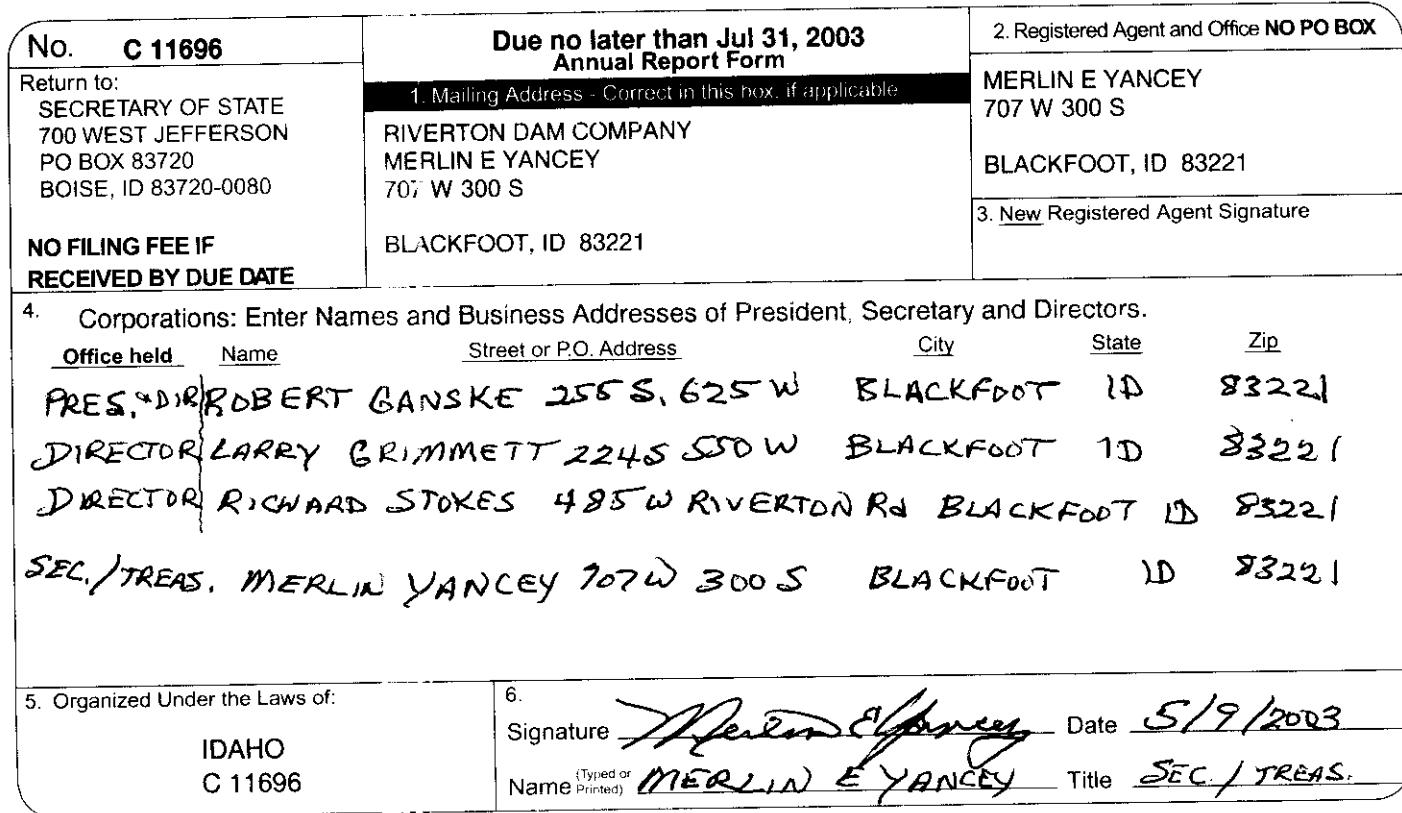 No. C 11696
Return to:
SECRETARY OF STATE
700 WEST JEFFERSON
PO BOX 83720
BOISE, ID 83720-0080
NO FILING FEE IF
RECEIVED BY DUE DATE
Due no later than Jul 31, 2003
Annual Report Form
1. Mailing Address - Correct in this box, if applicable
RIVERTON DAM COMPANY
MERLIN E YANCEY
707 W 300 S
BLACKFOOT, ID 83221
2. Registered Agent and Office NO PO BOX
MERLIN E YANCEY
707 W 300 S
BLACKFOOT, ID 83221
3. New Registered Agent Signature
4. Corporations: Enter Names and Business Addresses of President, Secretary and Directors.
Office held Name Street or P.O. Address City State Zip
PRES. & DIR ROBERT GANSKE 255 S. 625 W BLACKFOOT ID 83221
DIRECTOR LARRY GRIMMETT 224 S 550 W BLACKFOOT ID 83221
DIRECTOR RICHARD STOKES 485 W RIVERTON Rd BLACKFOOT ID 83221
SEC./TREAS. MERLIN YANCEY 707 W 300 S BLACKFOOT ID 83221
5. Organized Under the Laws of:
IDAHO
C 11696
6.
Signature Merlin E Yancey Date 5/9/2003
Name (Typed or Printed) MERLIN E YANCEY Title SEC. / TREAS.